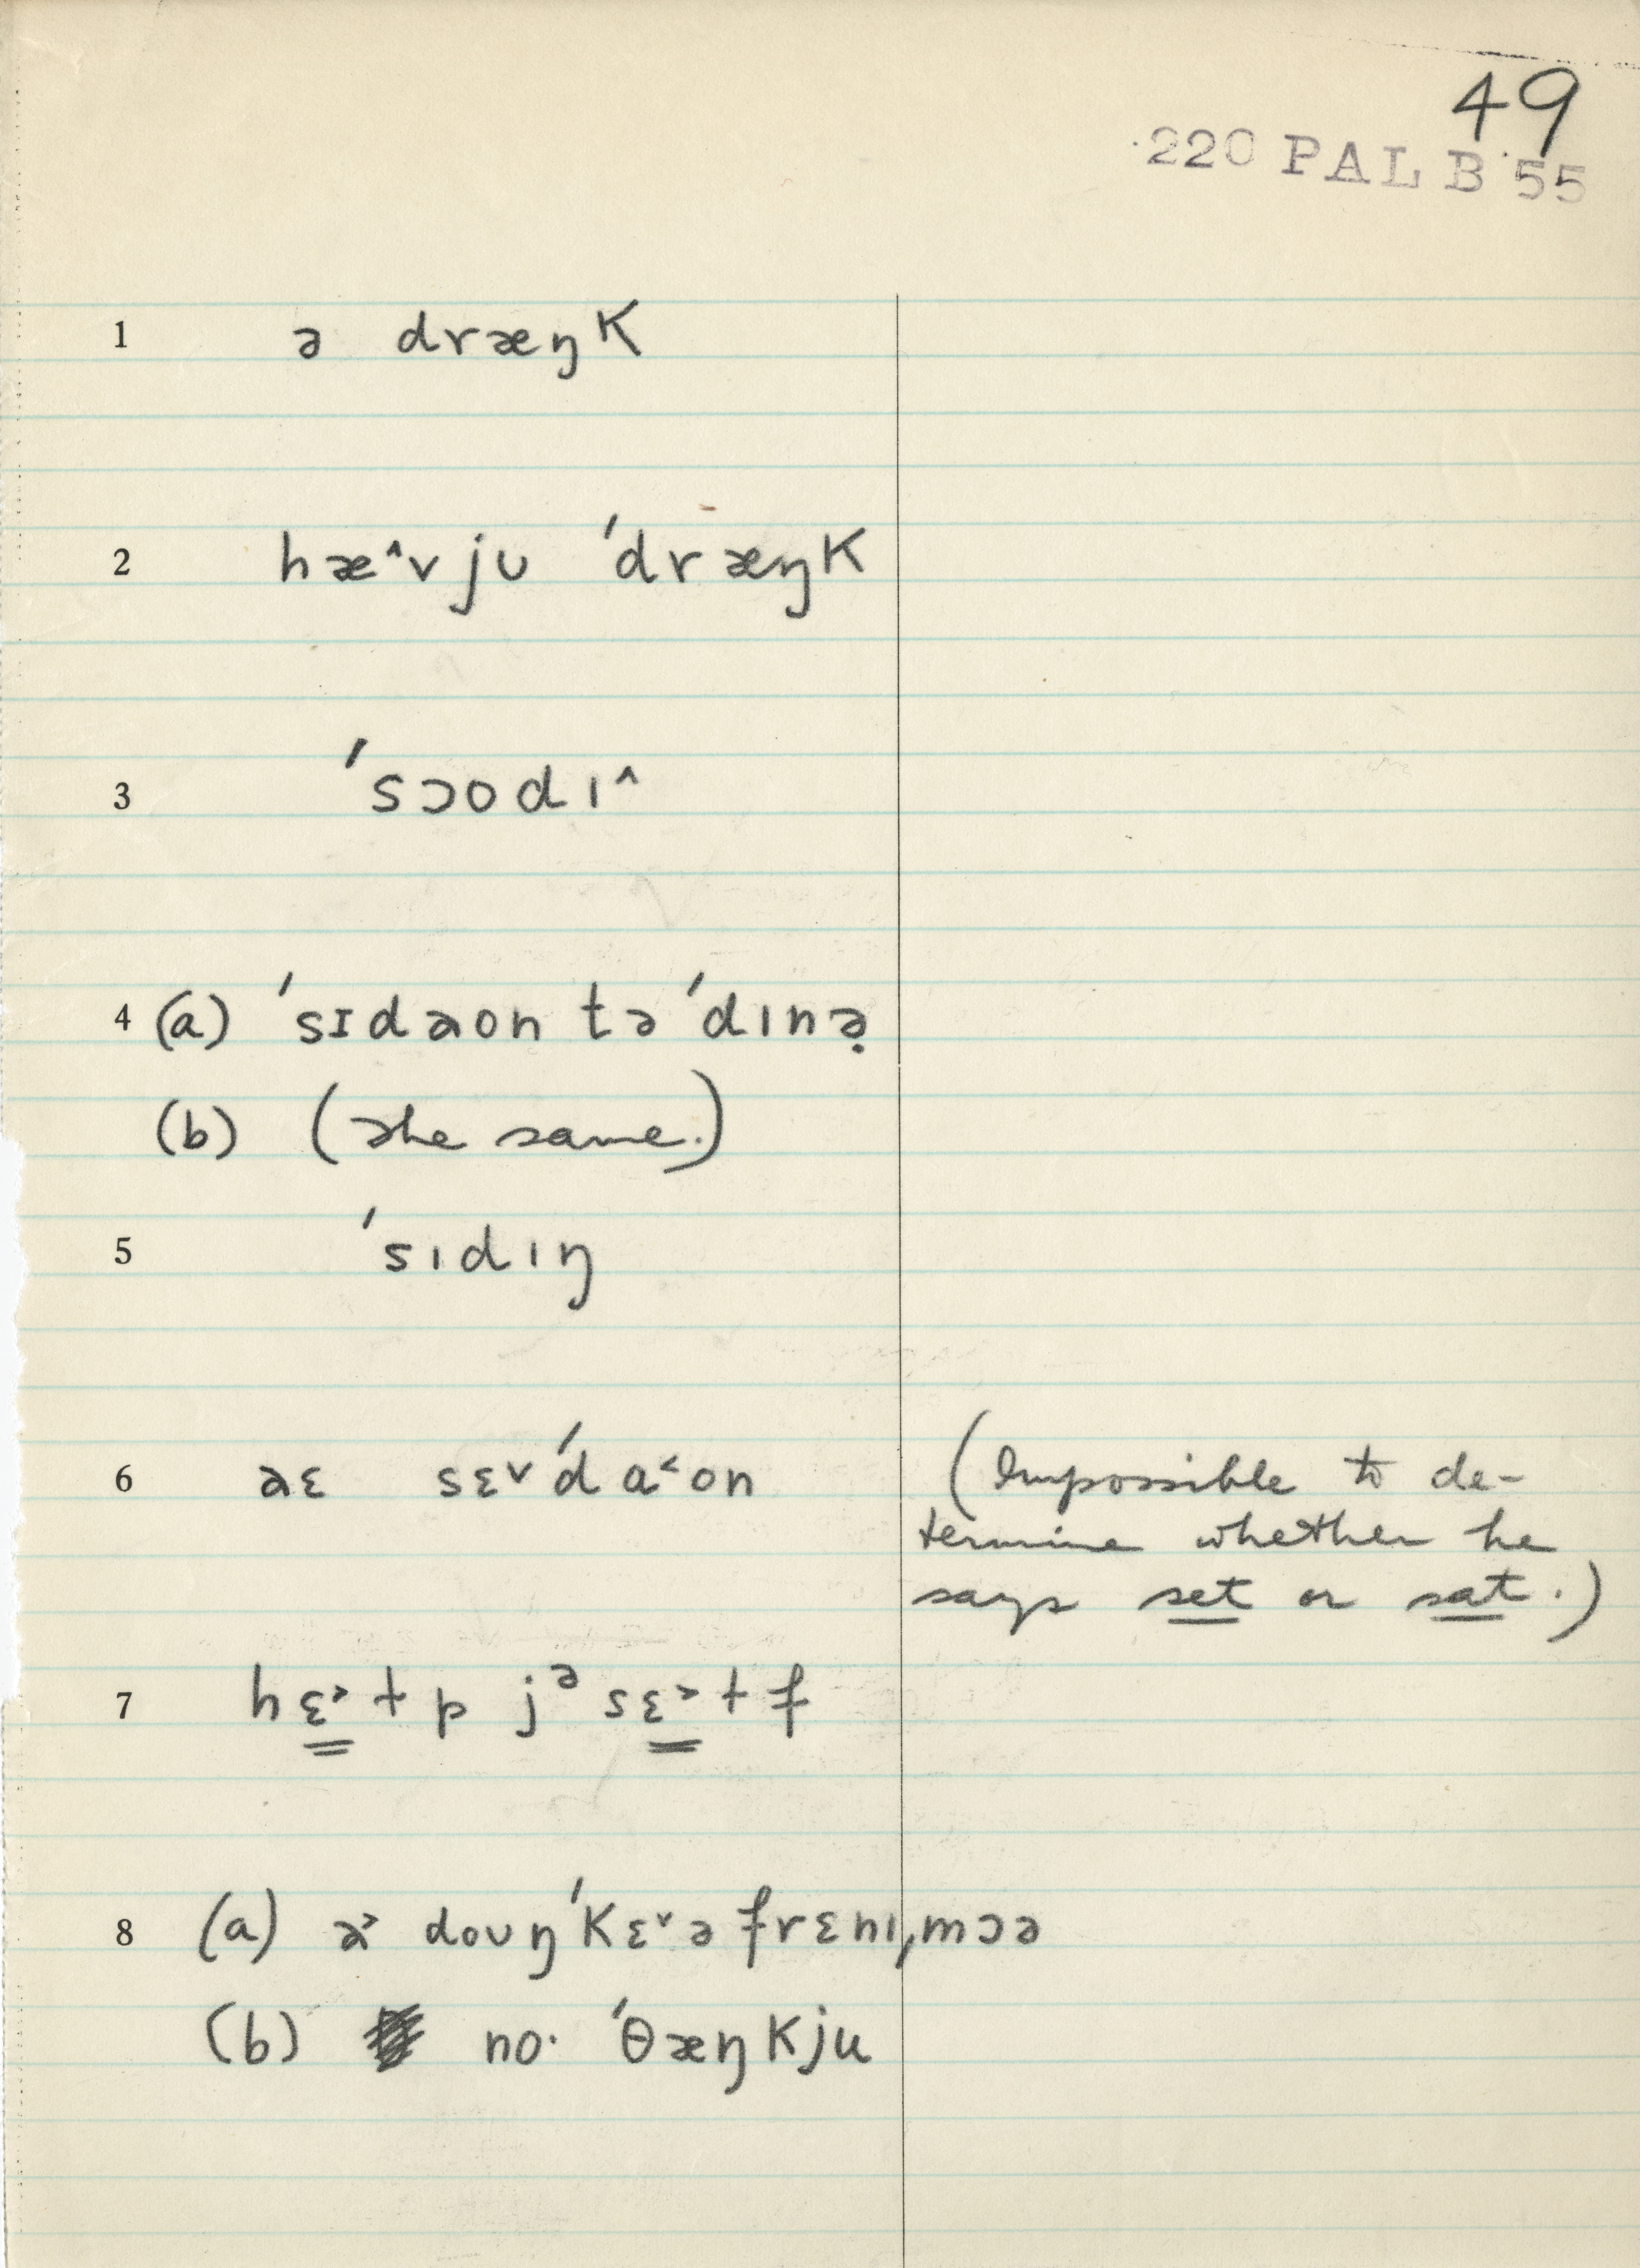 49
220 PAL B 55
1 ə dræŋk
2 hæ˄vjʊ ˈdræŋk
3 ˈsɔodɪ˄
4 (a) ˈsɪdaon tə ˈdɪnə̣
(b) (the same.)
5 ˈsɪdɪŋ
6 aɛ sɛ˅ˈda˂on (Impossible to de-
termine whether he
says set or sat.)
7 hɛ˃ɫp jᵊ sɛ˃ɫf
8 (a) a˃ doʊŋˈkɛ˅ə frɛnɪˌmɔə
(b) no· ˈθæŋkju